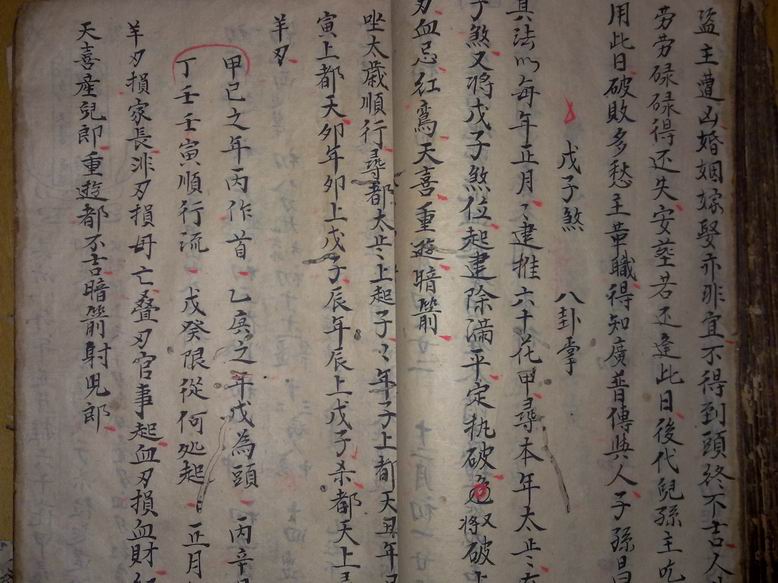 盜主遭凶婚姻嫁娶亦非宜不得到頭終不吉人
劳劳碌碌得还失安荃若还逢此日後代兒孫主吃
用此日破敗多愁主革職得知廣普傳與人子孫昌
戊子煞 八卦掌
其法以每年正月々建推六十花甲尋本年太歲
子煞又將戊子煞位起建除滿平定执破危又將破
刃血忌紅鸞天喜重遊暗箭
坐太歲順行尋都太歲上起子々年子上都天丑年
寅上都天卯年卯上戊子辰年辰上戊子杀都天上
羊刃
甲已之年丙作首 乙庚之年戊為頭 丙辛
丁壬壬寅順行流 戊癸限從何処起 正月
羊刃損家長 非刃損母亡叠刃官事起血刃損血財
天喜產兒郎重遊都不吉暗箭射児郎